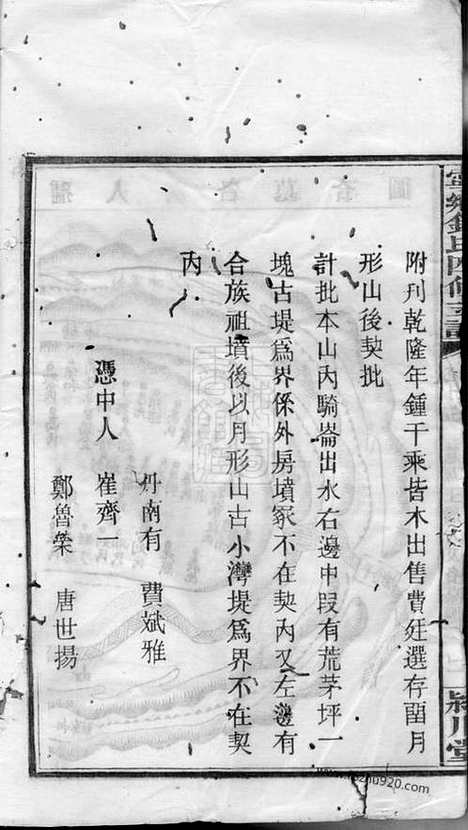 附刊乾隆年鍾干乘皆木出售費廷選存畱月
形山後契批
計批本山內騎崙出水右邊中段有荒茅坪一
塊古堤爲界係外房墳冢不在契內又左邊有
合族祖墳後以月形山古小灣堤爲界不在契
內
憑中人
丹南有 費斌雅
崔齊一
鄭魯榮 唐世揚
潁川堂